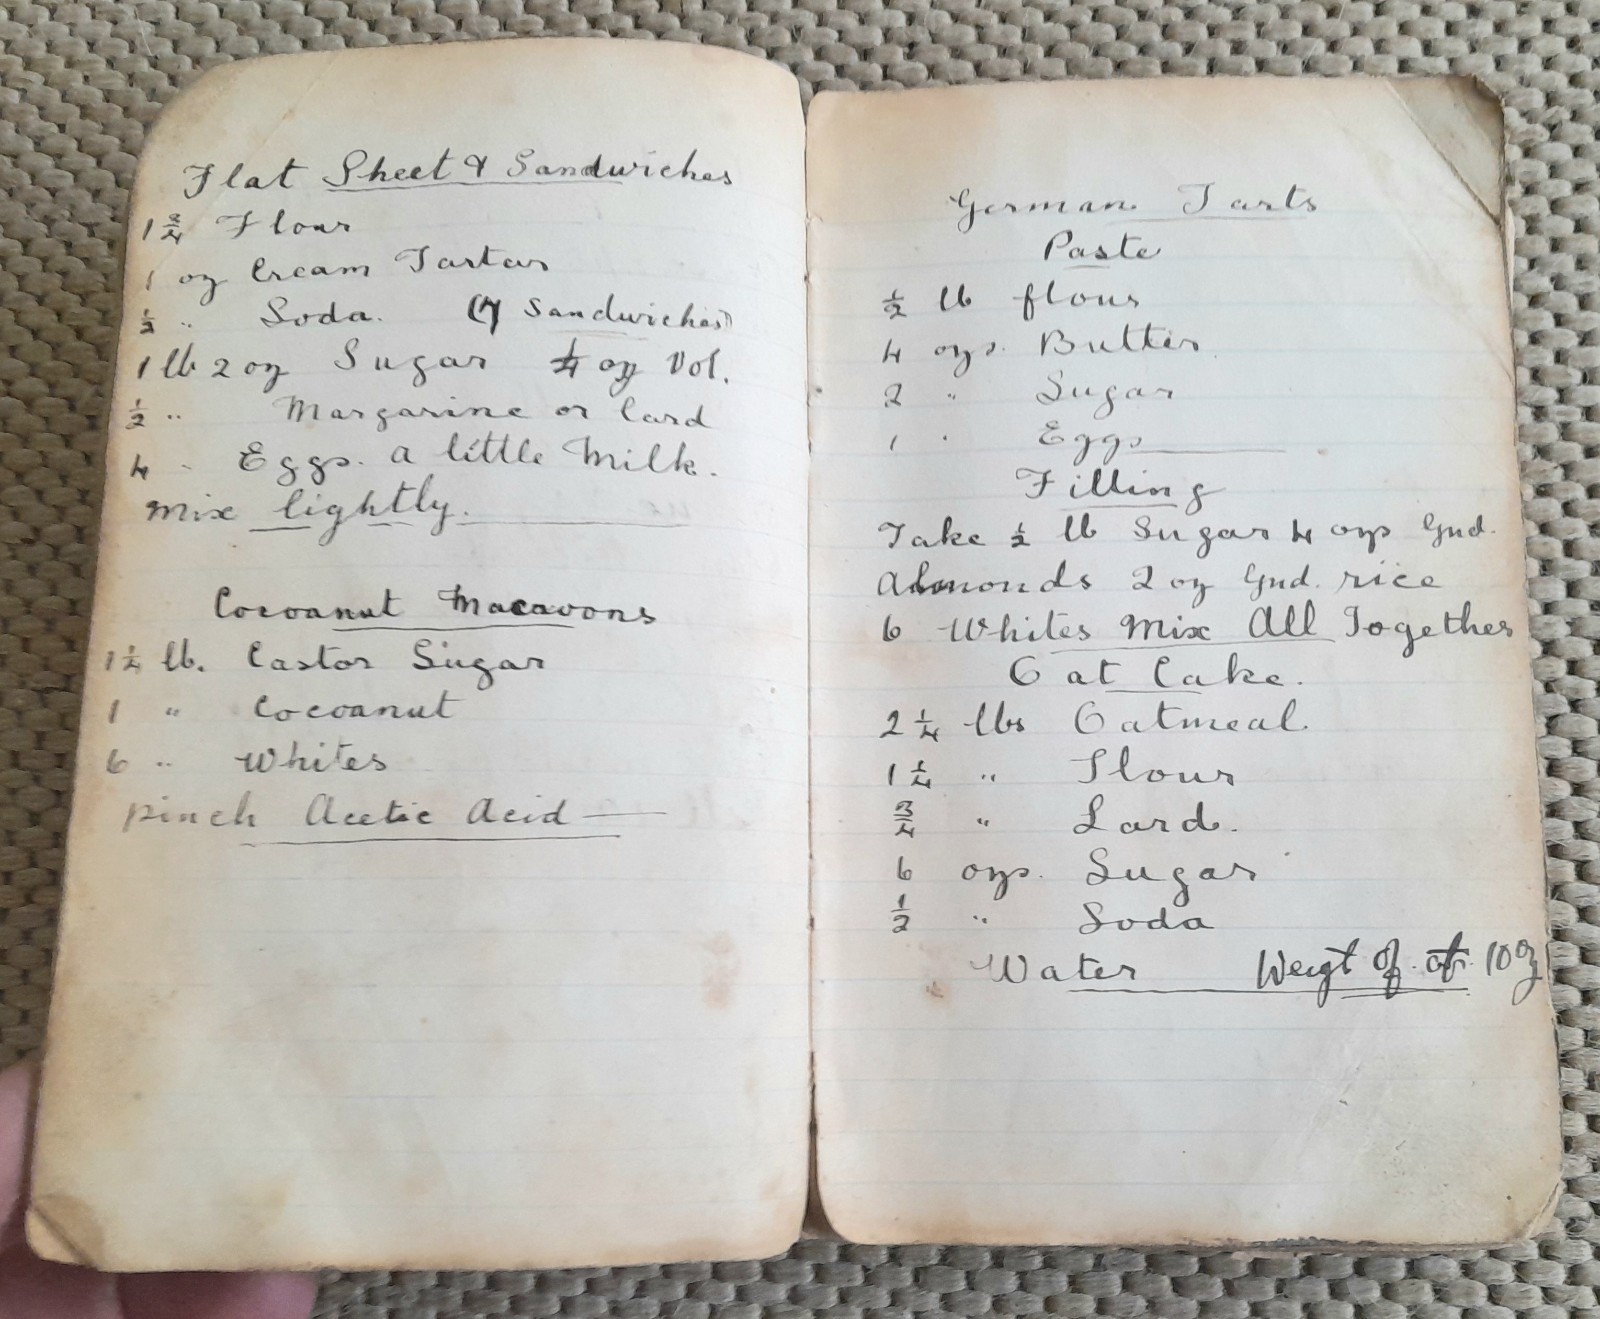 Flat Sheet & Sandwiches
1 3/4 Flour
1 oz Cream Tartar
1/2 " Soda. (7 Sandwiches)
1 lb 2 oz Sugar 1/4 oz Vol.
1/2 " Margarine or lard
4 " Eggs. a little Milk.
Mix lightly.
Cocoanut Macaroons
1 1/4 lb. Castor Sugar
1 " Cocoanut
6 " Whites
pinch Acetic Acid
German Tarts
Paste
1/2 lb flour
4 ozs. Butter
2 " Sugar
1 " Eggs
Filling
Take 1/2 lb Sugar 4 ozs Gnd.
Almonds 2 oz Gnd. rice
6 Whites Mix All Together
Oat Cake.
2 1/4 lbs Oatmeal
1 1/4 " Flour
3/4 " Lard.
6 ozs. Sugar
1/2 " Soda
Water Weigt of 10 oz